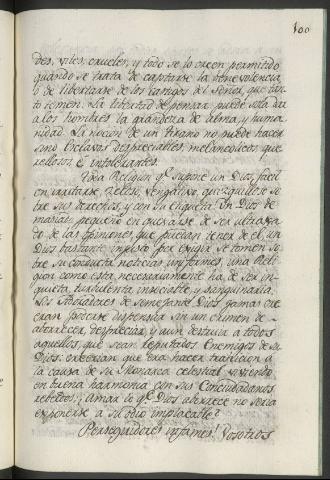 100
des, viles, crueles, y todo se lo creen permitido
quando se trata de captarse la benevolencia,
o de libertarse de los castigos del Señor, que tan-
to temen. La libertad de pensar puede sola dar
a los hombres la grandeza de alma, y huma-
nidad. La nocion de un tirano no puede hacer
sino Esclavos despreciables melancolicos que-
rellosos, é intolerantes.
Una Religion qe. supone un Dios, facil
en irritarse, zeloso, vengativo, quisquilloso so-
bre sus derechos, y con su Etiqueta: Un Dios de-
masiado pequeño en quexarse de ser ultraja-
do de las opiniones que puedan tener de el, un
Dios bastante injusto por exigir se tomen so-
bre su conducta noticias uniformes, una Reli-
gion como esta, necesariamente ha de ser in-
quieta, turbulenta, insociable, y sanguinaria.
Los Adoradores de semejante Dios jamas cre-
eran poderse dispensar sin un crimen de
aborrecer, despreciar, y aun destruir a todos
aquellos, que sean reputados Enemigos de su
Dios: creerian que era hacer traicion à
la causa de su Monarca celestial viviendo
en buena harmonia con sus Conciudadanos
rebeldes; ¿amar lo qe. Dios aborrece no seria
exponerse a su odio implacable?
Perseguidores infames! Vosotros